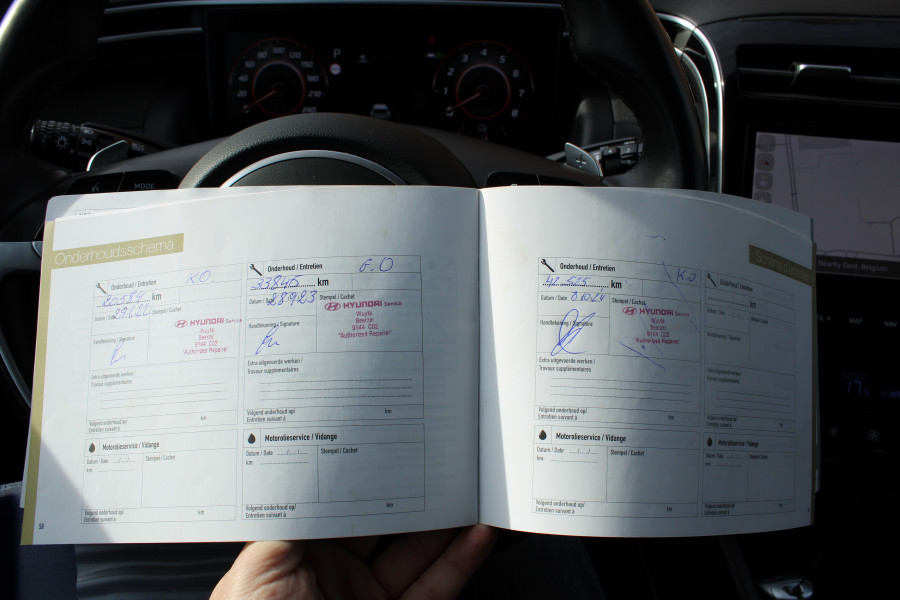 P
MODE
Nearby Gent, Belgium
MAP
NAV
Onderhoudsschema
Onderhoud / Entretien
K.O
20584 km
Datum / Date
Stempel / Cachet
HYUNDAI Service
Wuyts
Beerzel
9144 CO2
"Authorized Repairer"
Handtekening / Signature
Extra uitgevoerde werken /
Travaux supplémentaires
Volgend onderhoud op/
Entretien suivant à
km
Motorolieservice / Vidange
Datum / Date
Stempel / Cachet
km
Volgend onderhoud op/
Entretien suivant à
km
58
Onderhoud / Entretien
G.O
33845 km
Datum / Date 28923
Stempel / Cachet
HYUNDAI Service
Wuyts
Beerzel
9144 CO2
"Authorized Repairer"
Handtekening / Signature
Extra uitgevoerde werken /
Travaux supplémentaires
Volgend onderhoud op/
Entretien suivant à
km
Motorolieservice / Vidange
Datum / Date
Stempel / Cachet
km
Volgend onderhoud op/
Entretien suivant à
km
Onderhoud / Entretien
K.O
42 525 km
Datum / Date
Stempel / Cachet
HYUNDAI Service
Wuyts
Beerzel
9144 CO2
"Authorized Repairer"
Handtekening / Signature
Extra uitgevoerde werken /
Travaux supplémentaires
Volgend onderhoud op/
Entretien suivant à
km
Motorolieservice / Vidange
Datum / Date
Stempel / Cachet
km
Volgend onderhoud op/
Entretien suivant à
km
Onderhoud / Entretien
km
Datum / Date
Stempel / Cachet
Handtekening / Signature
Extra uitgevoerde werken /
Travaux supplémentaires
Volgend onderhoud op/
Entretien suivant à
Motorolieservice / Vidange
Datum / Date
Stempel / Cachet
km
Volgend onderhoud op/
Entretien suivant à